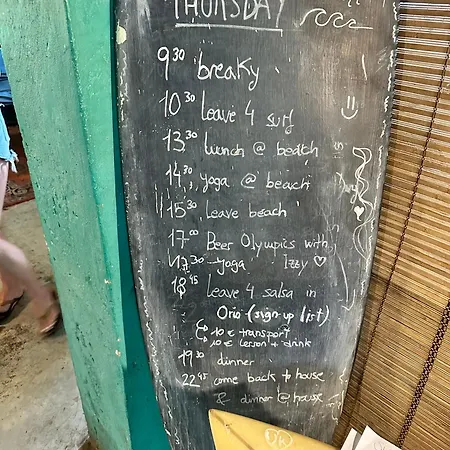 THURSDAY
9:30 breaky
10:30 leave 4 surf
13:30 lunch @ beach
14:30 yoga @ beach
15:30 leave beach
17:00 Beer Olympics with
17:30 yoga Izzy ♡
18:45 leave 4 salsa in
Orio (sign up list)
10 € transport
10 € lesson + drink
19:30 dinner
22:45 come back to house
& dinner @ house